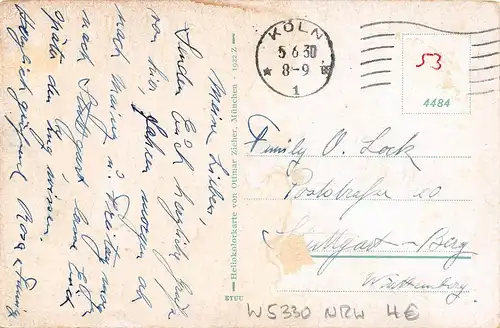 Meine Lieben,
Senden Euch herzliche Grüße
von hier, fahren morgen ab
nach Mainz u. Freitag
nach Stuttgart kann Euch
später den Zug wissen.
Herzlich grüßend Rosa
Heliokolorkarte von Ottmar Zieher, München - 1922 Z -
ZYUU
KÖLN
5.6.30
8-9
1
53
4484
Family O. Lock
Poststraße 00
Stuttgart - Berg
Württemberg.
W5330 NRW 4€